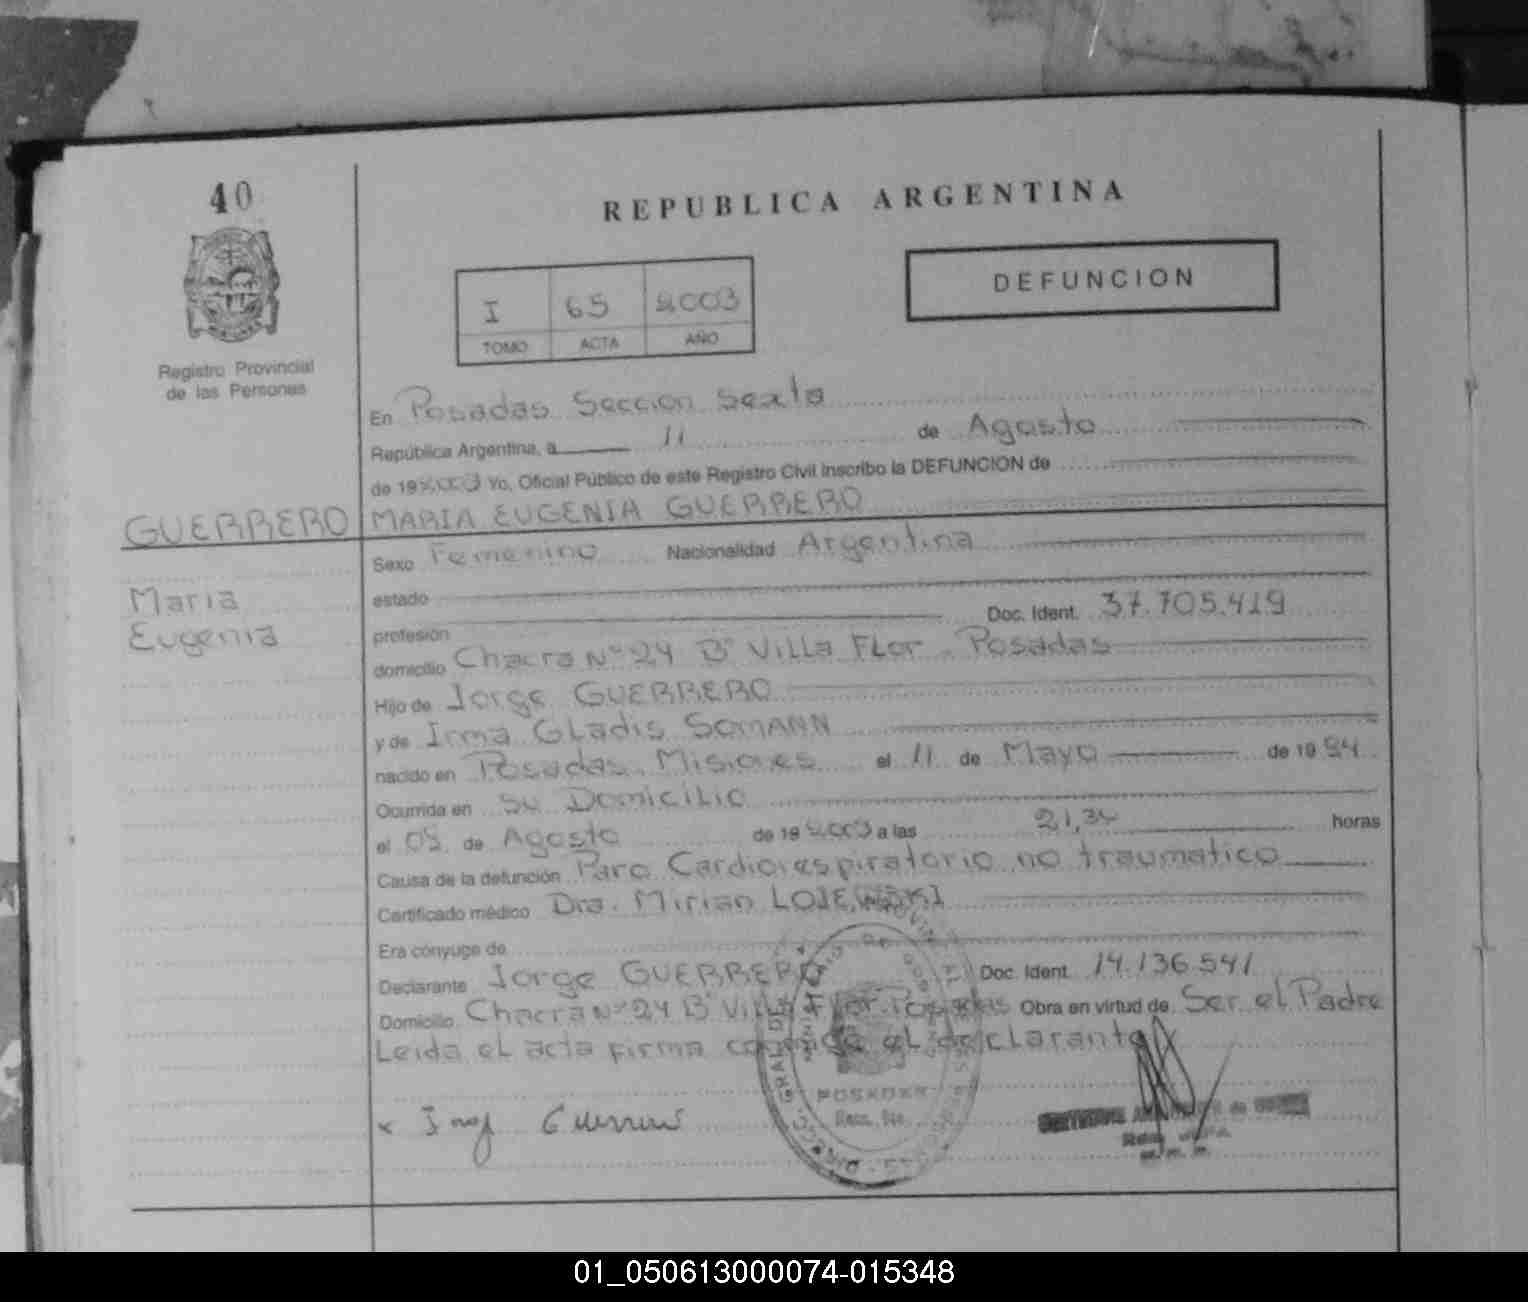 40
REPUBLICA ARGENTINA
DEFUNCION
I 65 2003
TOMO ACTA AÑO
Registro Provincial
de las Personas
En Posadas Seccion Sexta
República Argentina, a 11 de Agosto
de 19 2003 Yo, Oficial Público de este Registro Civil inscribo la DEFUNCION de
GUERRERO MARIA EUGENIA GUERRERO
Maria
Eugenia
Sexo Femenino Nacionalidad Argentina
estado
profesión Doc. Ident. 37.705.419
domicilio Chacra Nº 24 Bº Villa Flor - Posadas
Hijo de Jorge GUERRERO
y de Irma Gladis SOMANN
nacido en Posadas, Misiones el 11 de Mayo de 19 94
Ocurrida en Su Domicilio
el de Agosto de 19 2003 a las 21,30 horas
Causa de la defunción Paro Cardiorespiratorio no traumatico
Certificado médico Dra. Mirian LOJEWSKI
Era cónyuge de
Declarante Jorge GUERRERO Doc. Ident. 14.136.541
Domicilio Chacra Nº 24 Bº Villa Flor-Posadas Obra en virtud de Ser el Padre
Leida el acta firma conmigo el declarante
POSADAS
01_050613000074-015348